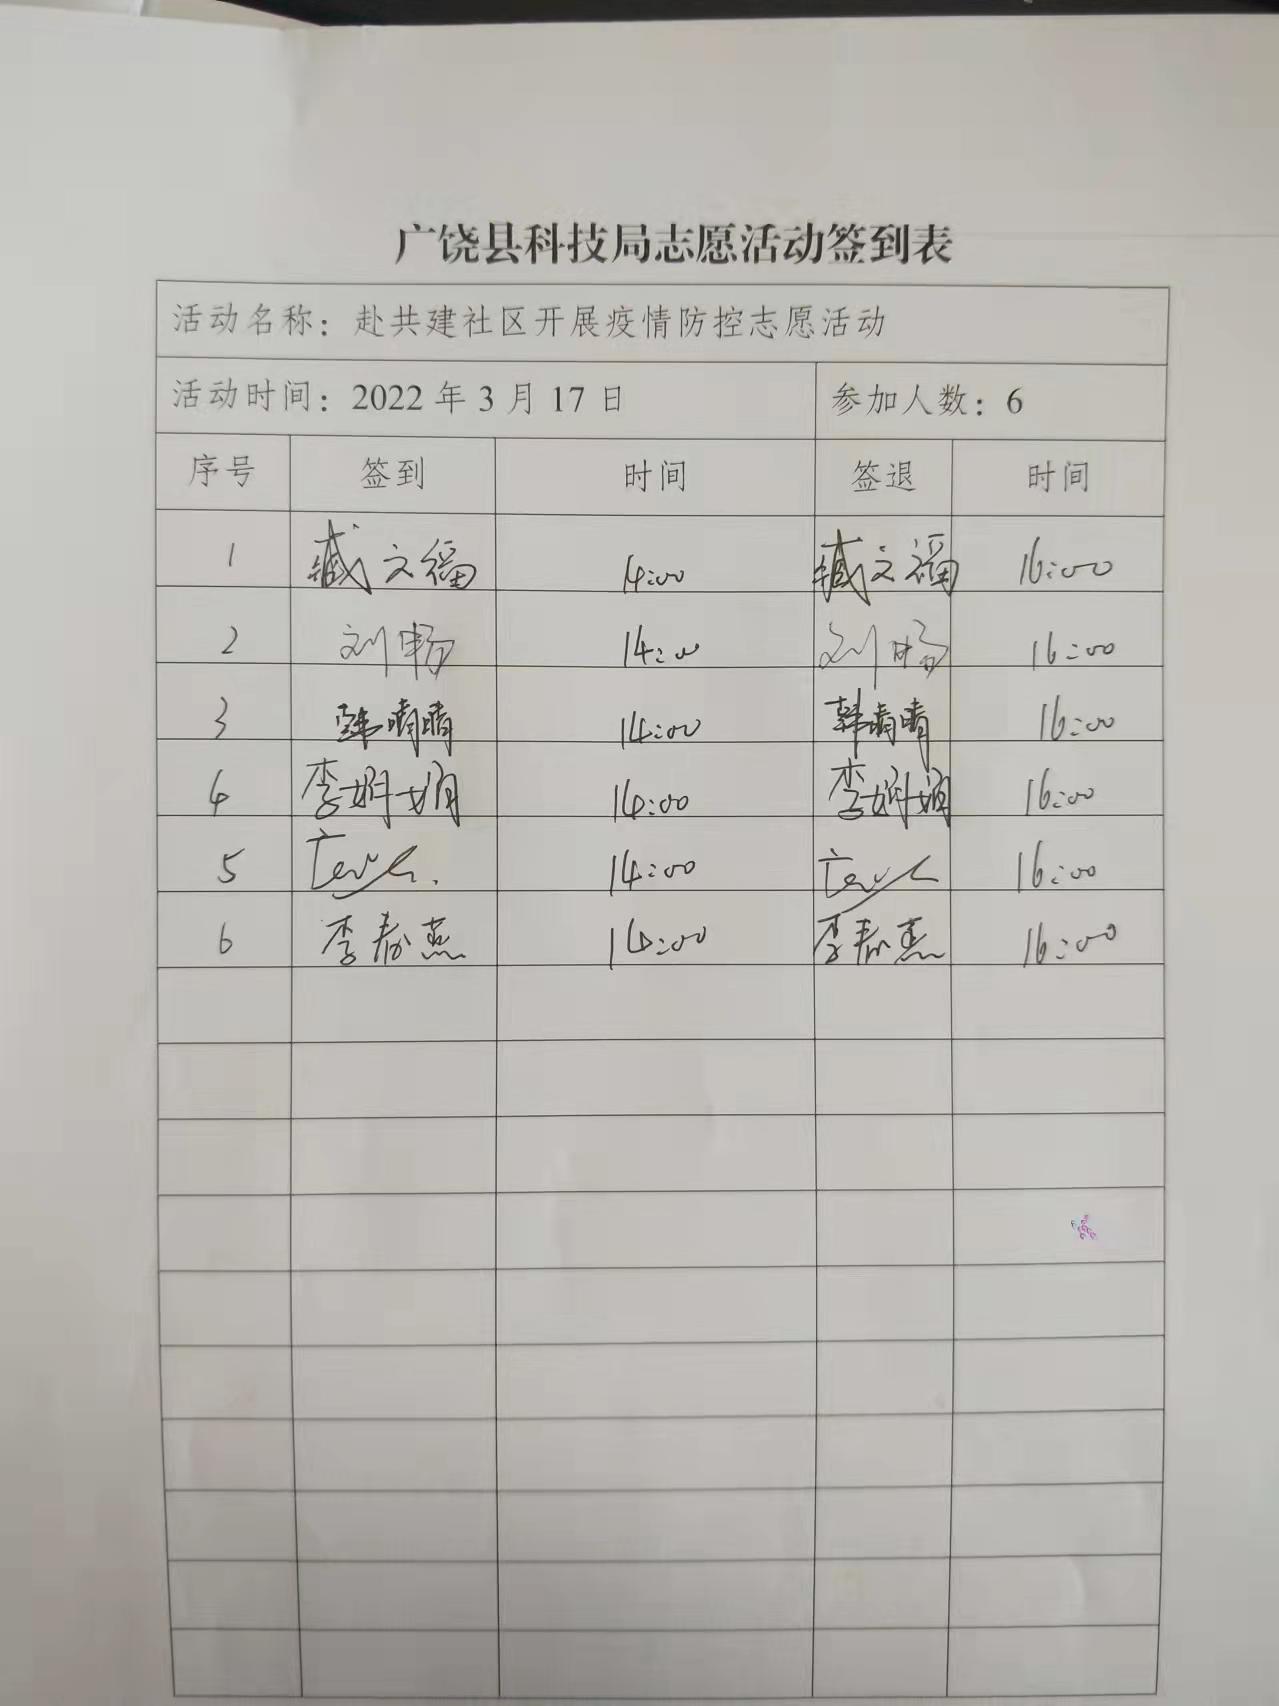 广饶县科技局志愿活动签到表
活动名称：赴共建社区开展疫情防控志愿活动
活动时间：2022年3月17日 参加人数：6
序号 签到 时间 签退 时间
1 臧文福 14:00 臧文福 16:00
2 刘畅 14:00 刘畅 16:00
3 韩晴晴 14:00 韩晴晴 16:00
4 李娟娟 14:00 李娟娟 16:00
5 14:00 16:00
6 李春燕 14:00 李春燕 16:00